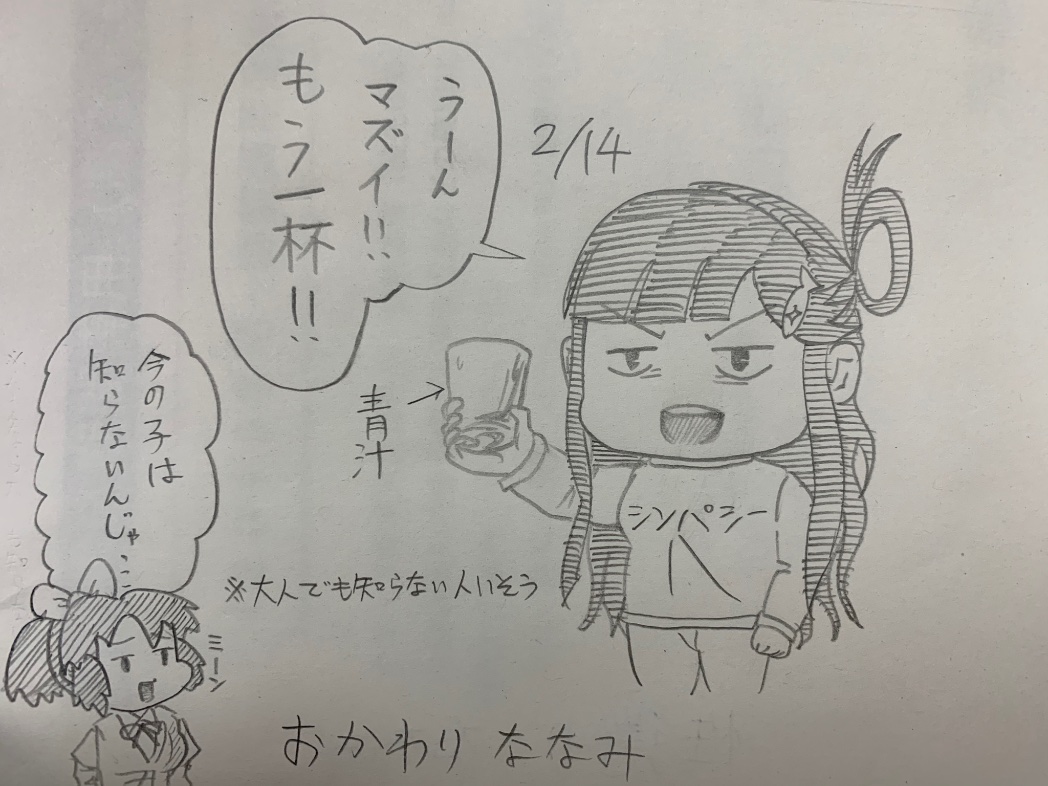 うーん
マズイ!!
もう一杯!!
2/14
青汁
シンパシー
今の子は
知らないんじゃ…
※大人でも知らない人いそう
ミーン
おかわり ななみ